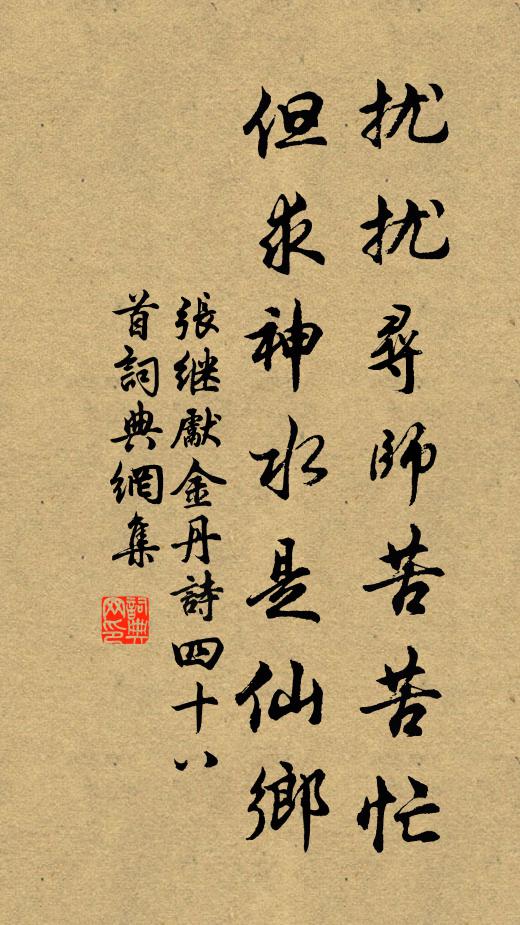 扰扰尋師苦苦忙
但求神水是仙鄉
張继獻金丹詩四十八
首詞典網集
詞典网印